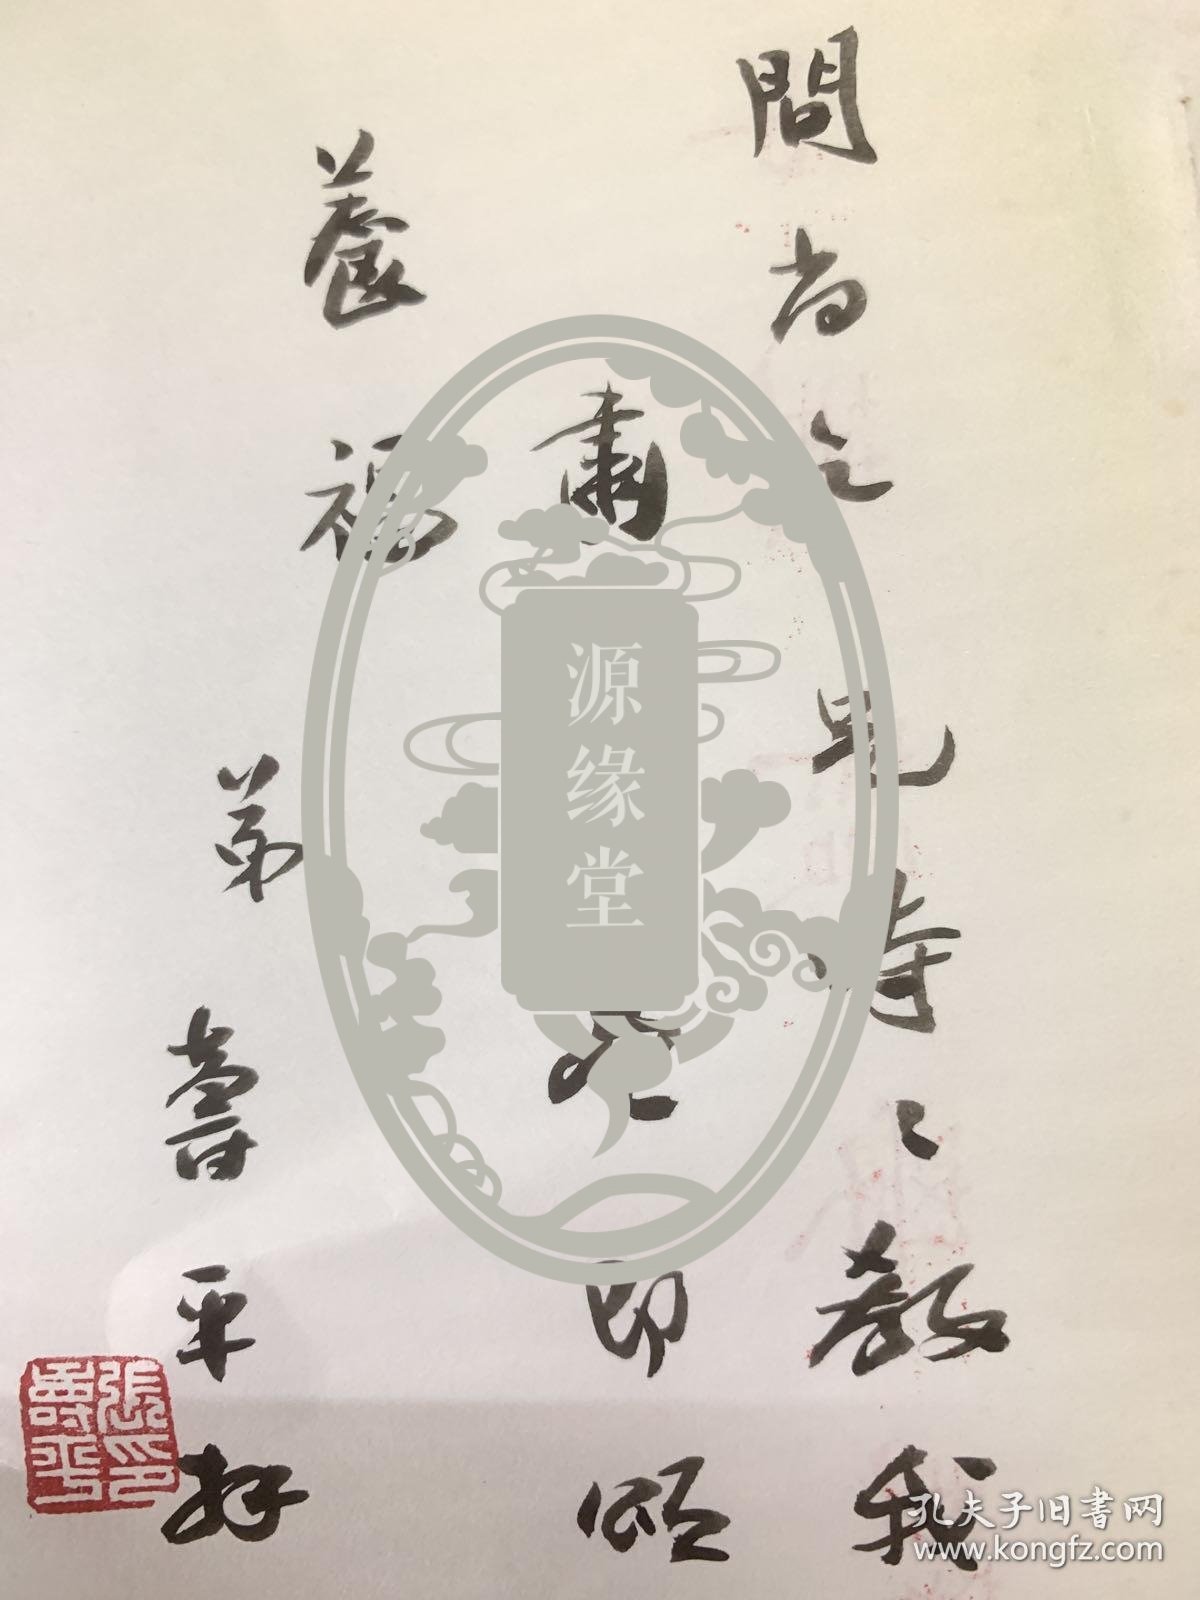 問尚之兄時々教我
肅
即頌
養福
弟 壽平拜
張印壽平
源缘堂
孔夫子旧书网
www.kongfz.com